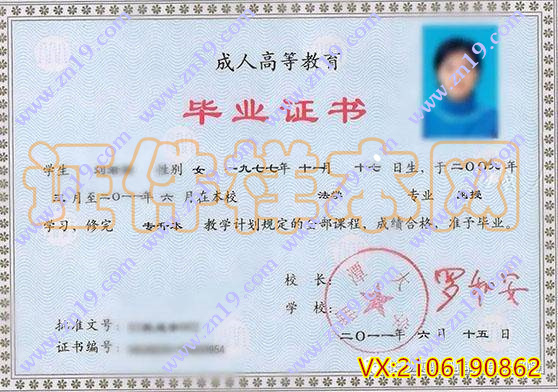 成人高等教育
毕业证书
学生 性别 女 一九七七年 十一月 十七日生，于二〇〇九年
三月至二〇一一年 六月在本校 法学 专业 函授
学习，修完 专升本 教学计划规定的全部课程，成绩合格，准予毕业。
校 长：
学 校：
批准文号：
二〇一一年 六 月 十五 日
证书编号：
证件样本网
www.zn19.com
VX:2i06190862